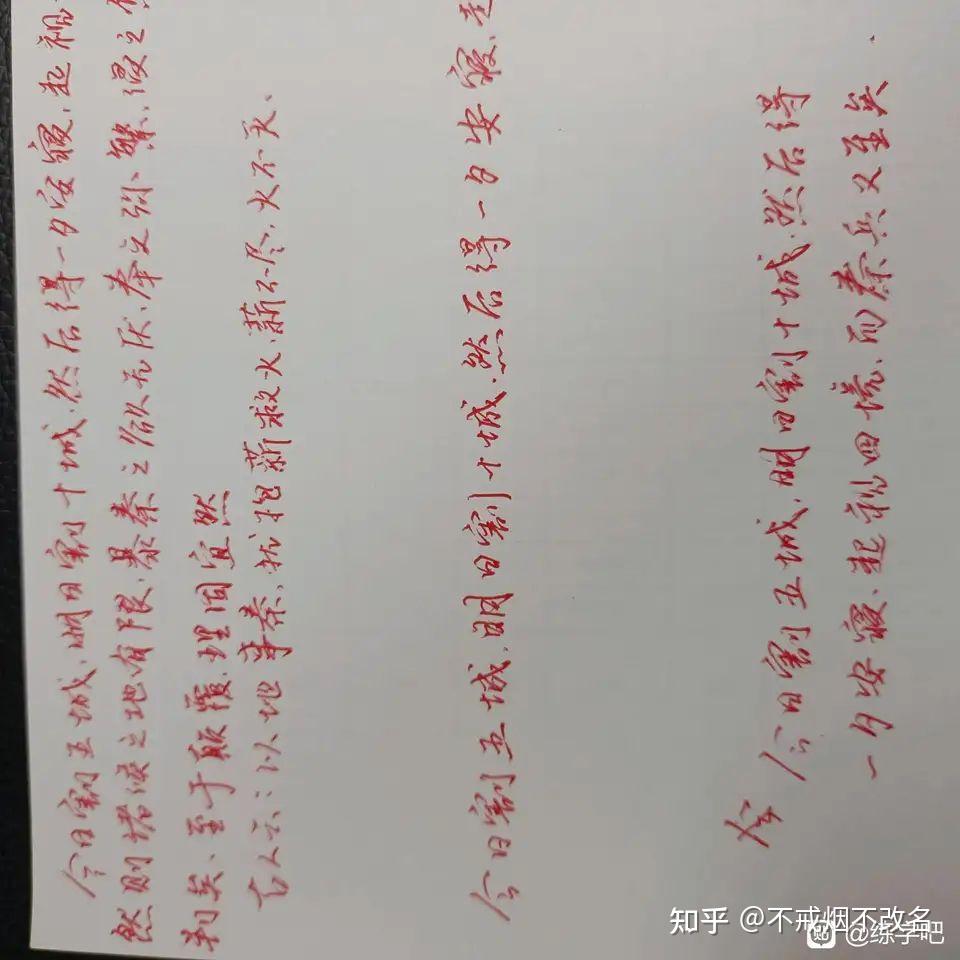 今日割五城,明日割十城,然后得一夕安寝,起视
然则诸侯之地有限,暴秦之欲无厌,奉之弥繁,侵之
判矣、至于颠覆,理固宜然
古人云:以地事秦,犹抱薪救火,薪不尽,火不灭、
今日割五城,明日割十城,然后得一夕安寝、
今
今日割五城,明日割十城,然后得
一夕安寝、起视四境,而秦兵又至矣
知乎 @不戒烟不改名
贴 @练字吧